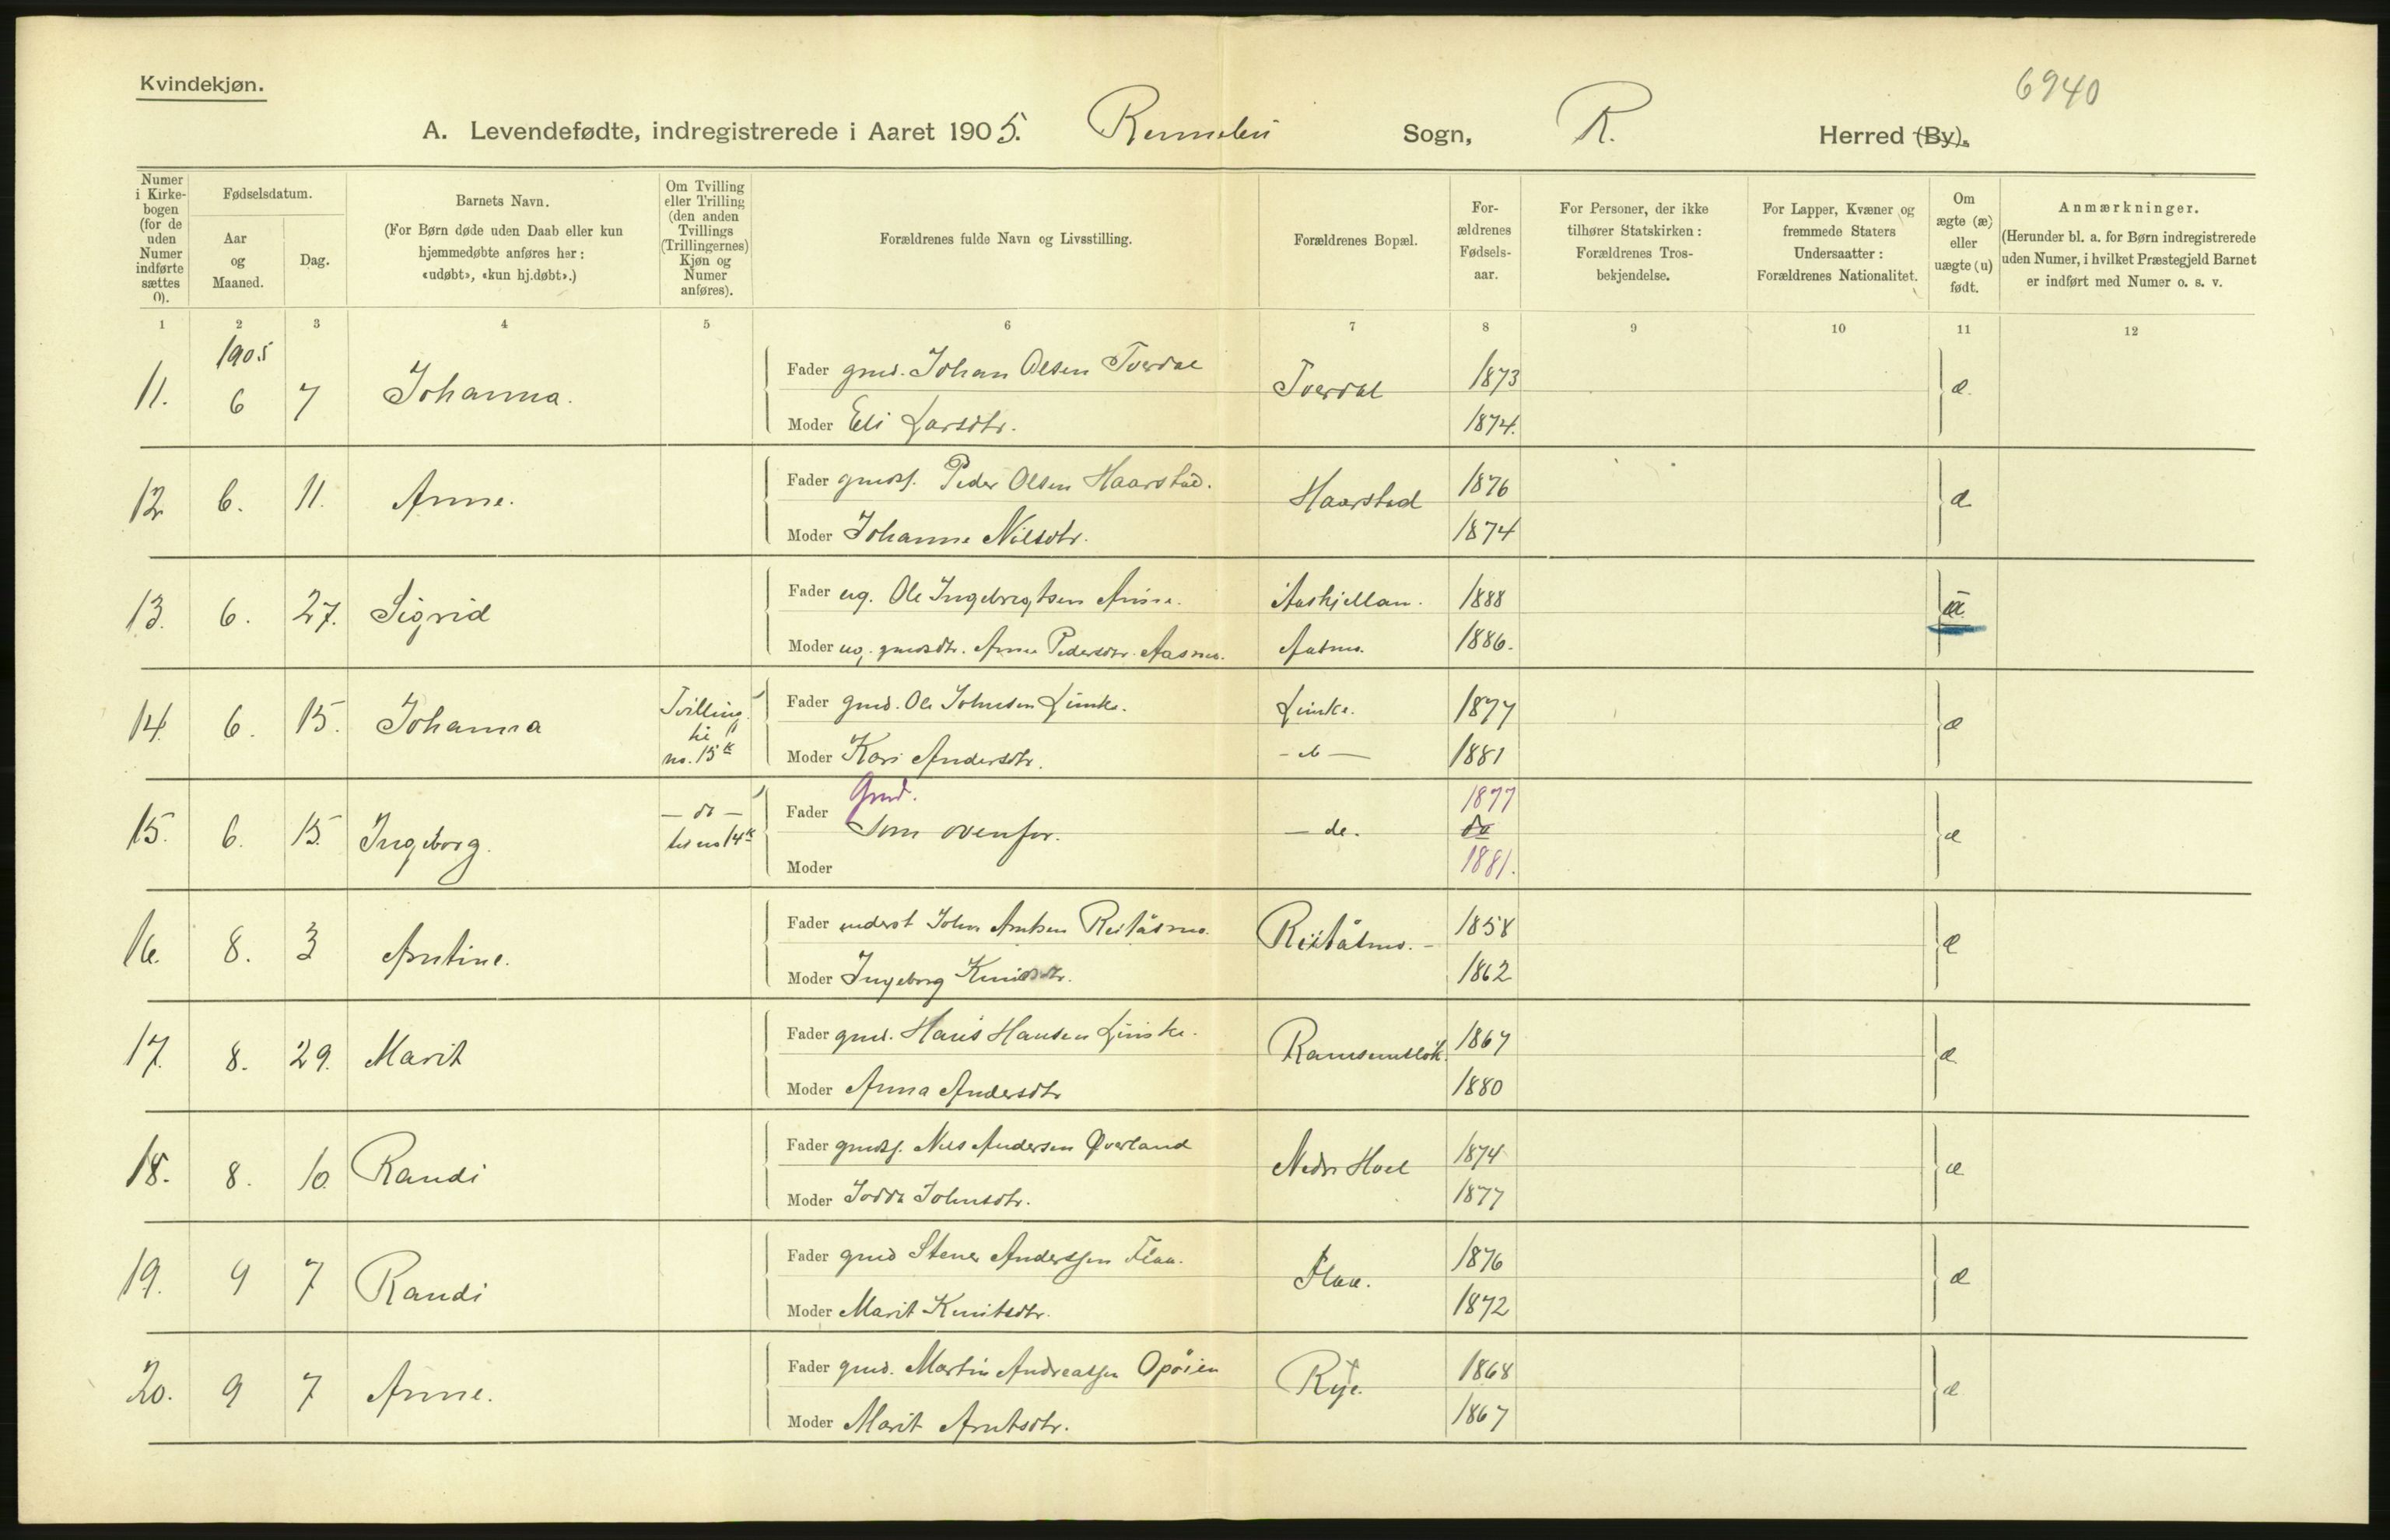 Kvindekjøn.
6940
A. Levendefødte, indregistrerede i Aaret 1905. Rennebu Sogn, R. Herred (By).
Numer i Kirkebogen (for de uden Numer indførte sættes 0).
Fødselsdatum.
Aar og Maaned.
Dag.
Barnets Navn.
(For Børn døde uden Daab eller kun hjemmedøbte anføres her: «udøbt», «kun hj.døbt».)
Om Tvilling eller Trilling (den anden Tvillings (Trillingernes) Kjøn og Numer anføres).
Forældrenes fulde Navn og Livsstilling.
Forældrenes Bopæl.
For-ældrenes Fødsels-aar.
For Personer, der ikke tilhører Statskirken: Forældrenes Tros-bekjendelse.
For Lapper, Kvæner og fremmede Staters Undersaatter: Forældrenes Nationalitet.
Om ægte (æ) eller uægte (u) født.
Anmærkninger.
(Herunder bl. a. for Børn indregistrerede uden Numer, i hvilket Præstegjeld Barnet er indført med Numer o. s. v.
1 2 3 4 5 6 7 8 9 10 11 12
1905
11. 6 7 Johanna. Fader gmd. Johan Olsen Tverdal Tverdal 1873 æ.
Moder Eli Larsdtr. 1874.
12 6. 11. Anne. Fader gmdsf. Peder Olsen Haarstad. Haarstad 1876 æ
Moder Johanne Nilsdtr. 1874
13. 6. 27. Sigrid Fader ug. Ole Ingebrigtsen Aaskjellan. 1888
Moder ug. gmdsdtr. Anne Pedersdtr. Aasmo. Aasmo. 1886.
14. 6. 15. Johanna Tvilling til no. 15 k Fader gmd. Ole Johnsen Linke. 1877 æ
Moder Kari Andersdtr. - do - 1881
15. 6. 15. Ingeborg. - do - til no 14 k Fader Gmd. Som ovenfor. - do. 1877 do 1881. æ
Moder
16. 8. 3 Arntine. Fader inderst John Arntsen Reitåsmo. Reitåsmo. - 1858 æ
Moder Ingeborg 1862
17. 8. 29. Marit Fader gmd. Hans Hansen 1867 æ
Moder Anna Andersdtr 1880
18. 8. 10. Randi Fader gmdsf. Nils Andersen Øverland Nedre Hoel 1874 æ
Moder Johnsdtr. 1877
19. 9 7 Randi Fader gmd Stener Anderssen Flaa. Flaa. 1876 æ
Moder Marit Knutsdtr. 1872
20. 9 7 Anne. Fader gmd. Martin Andreassen Opöien Rye. 1868 æ
Moder Marit Arntsdtr. 1867